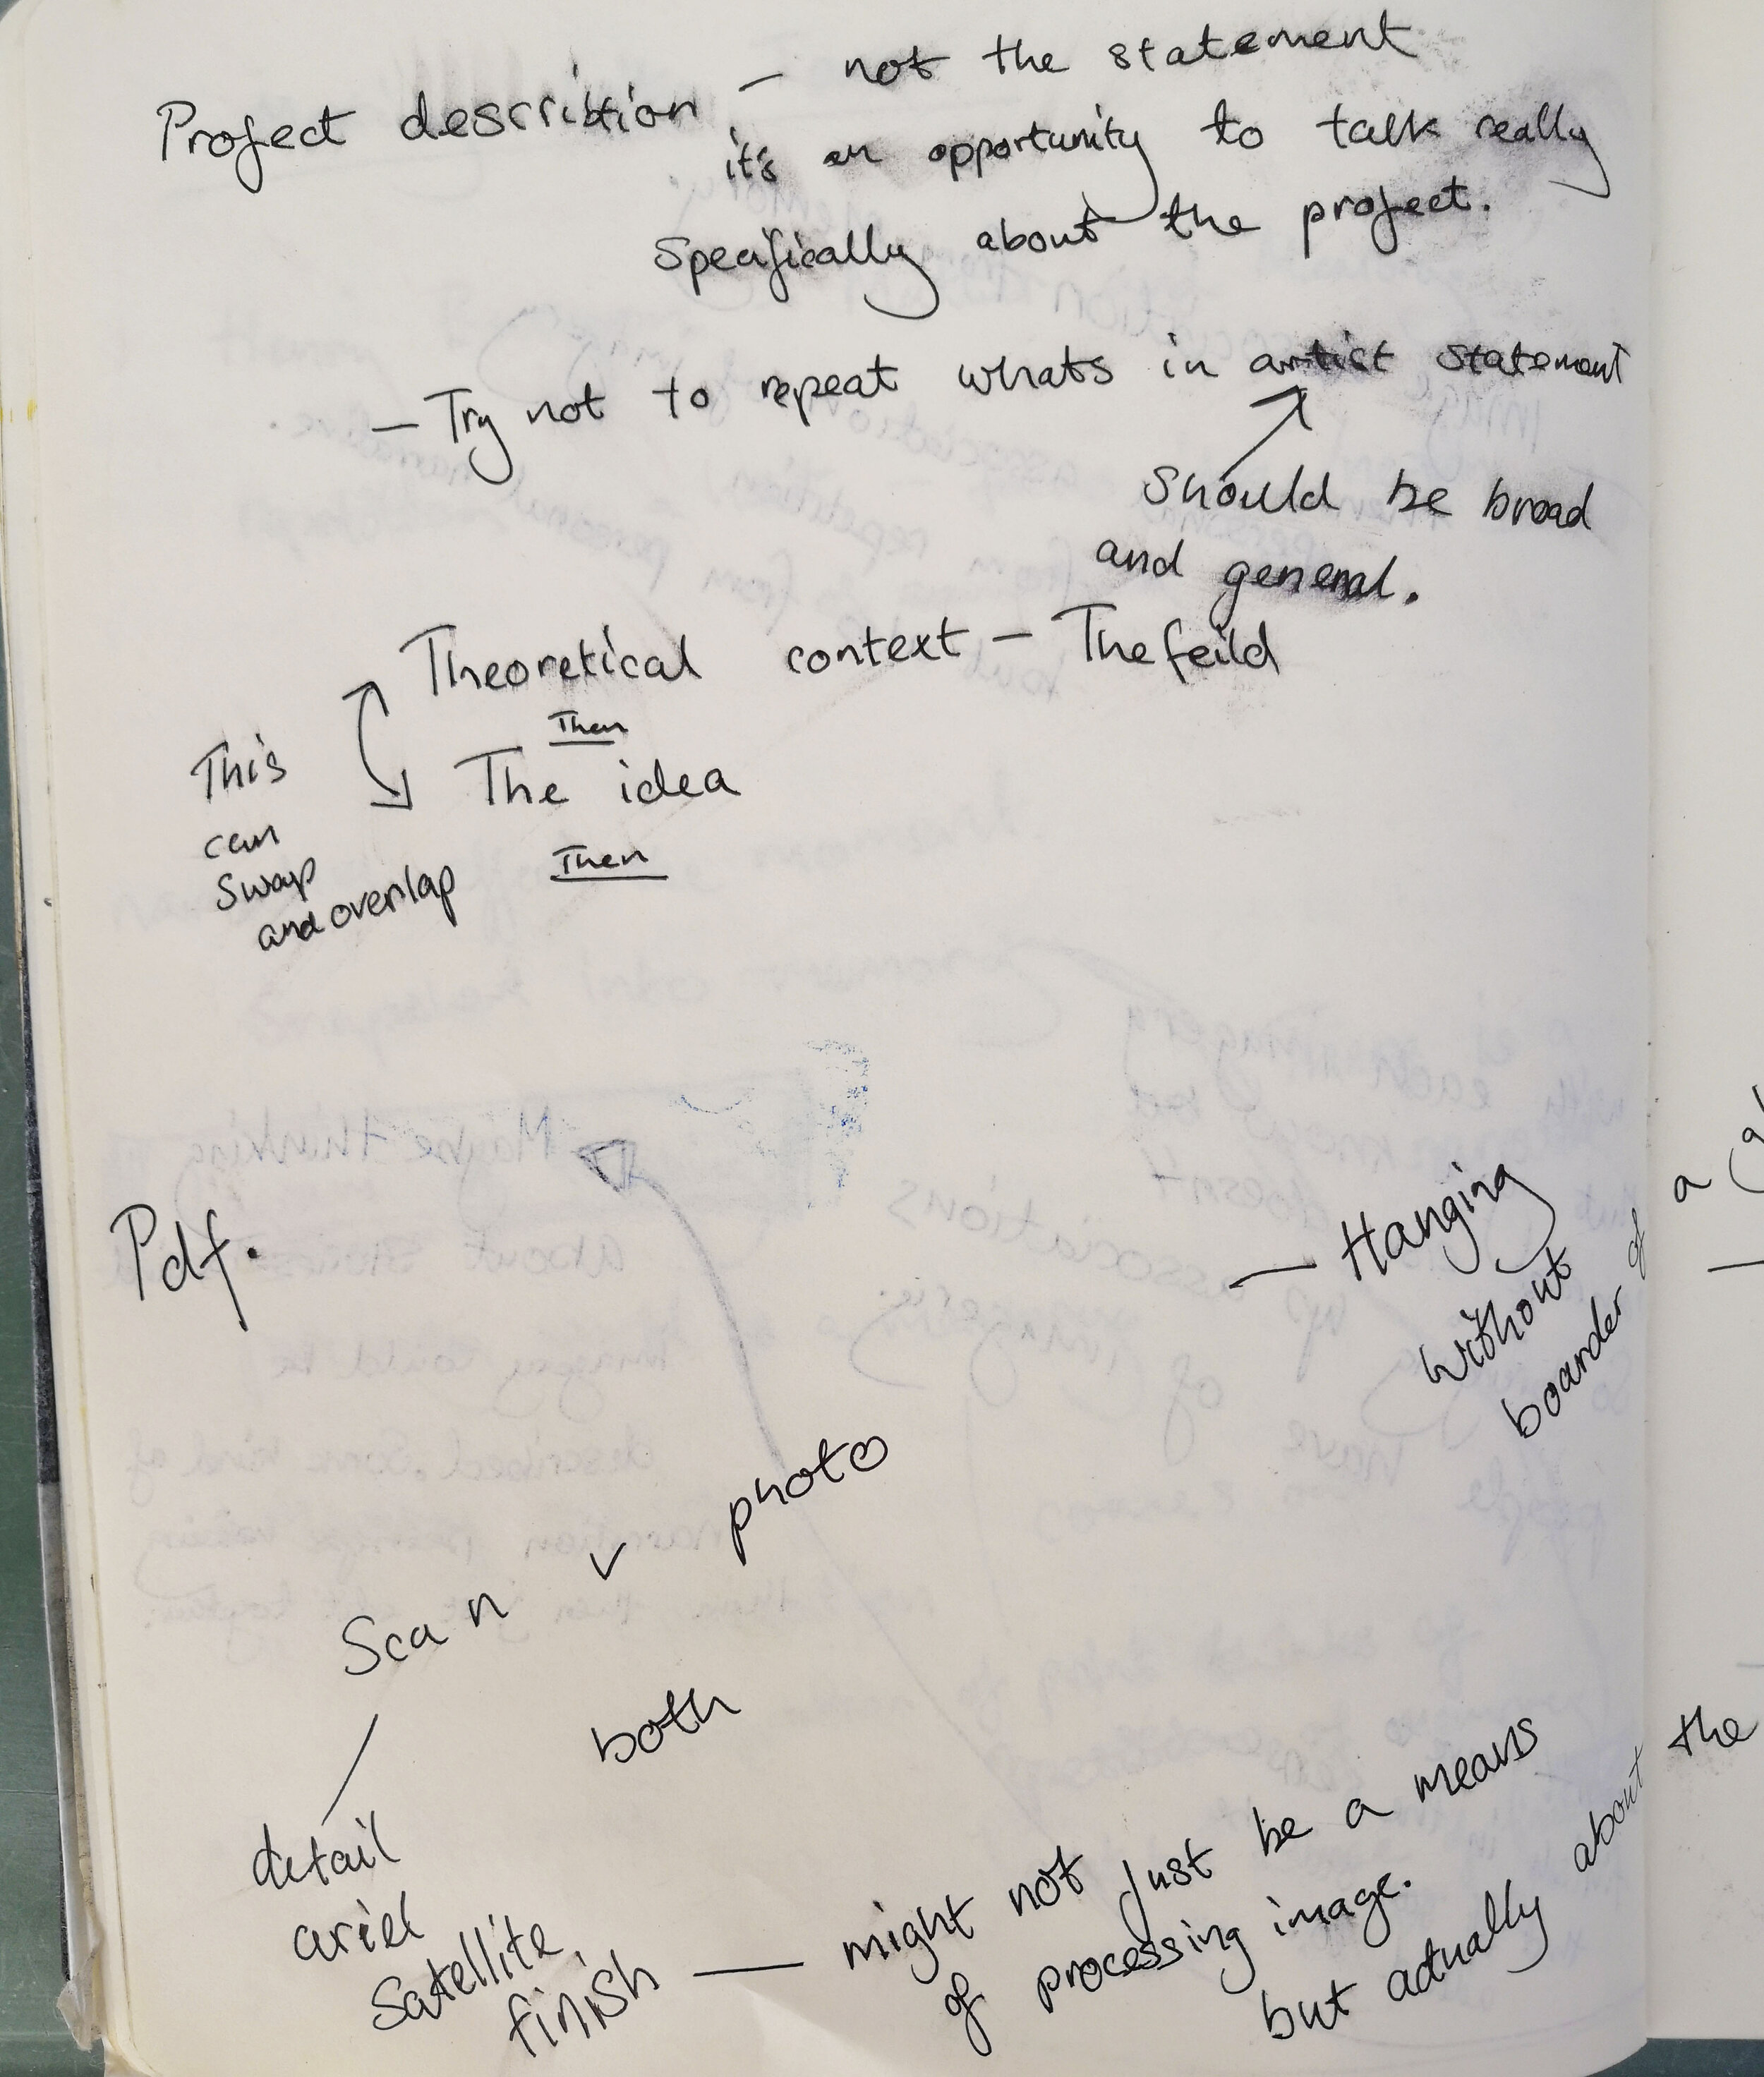 Project description — not the statement
it's an opportunity to talk really
specifically about the project.
— Try not to repeat whats in artist statement
should be broad
and general.
Theoretical context — The feild
Then
The idea
Then
This
can
swap
and overlap
Pdf.
— Hanging
without
boarder of a
Scan v photo
both
detail
ariel
satellite
finish — might not just be a means
of processing image.
but actually about the